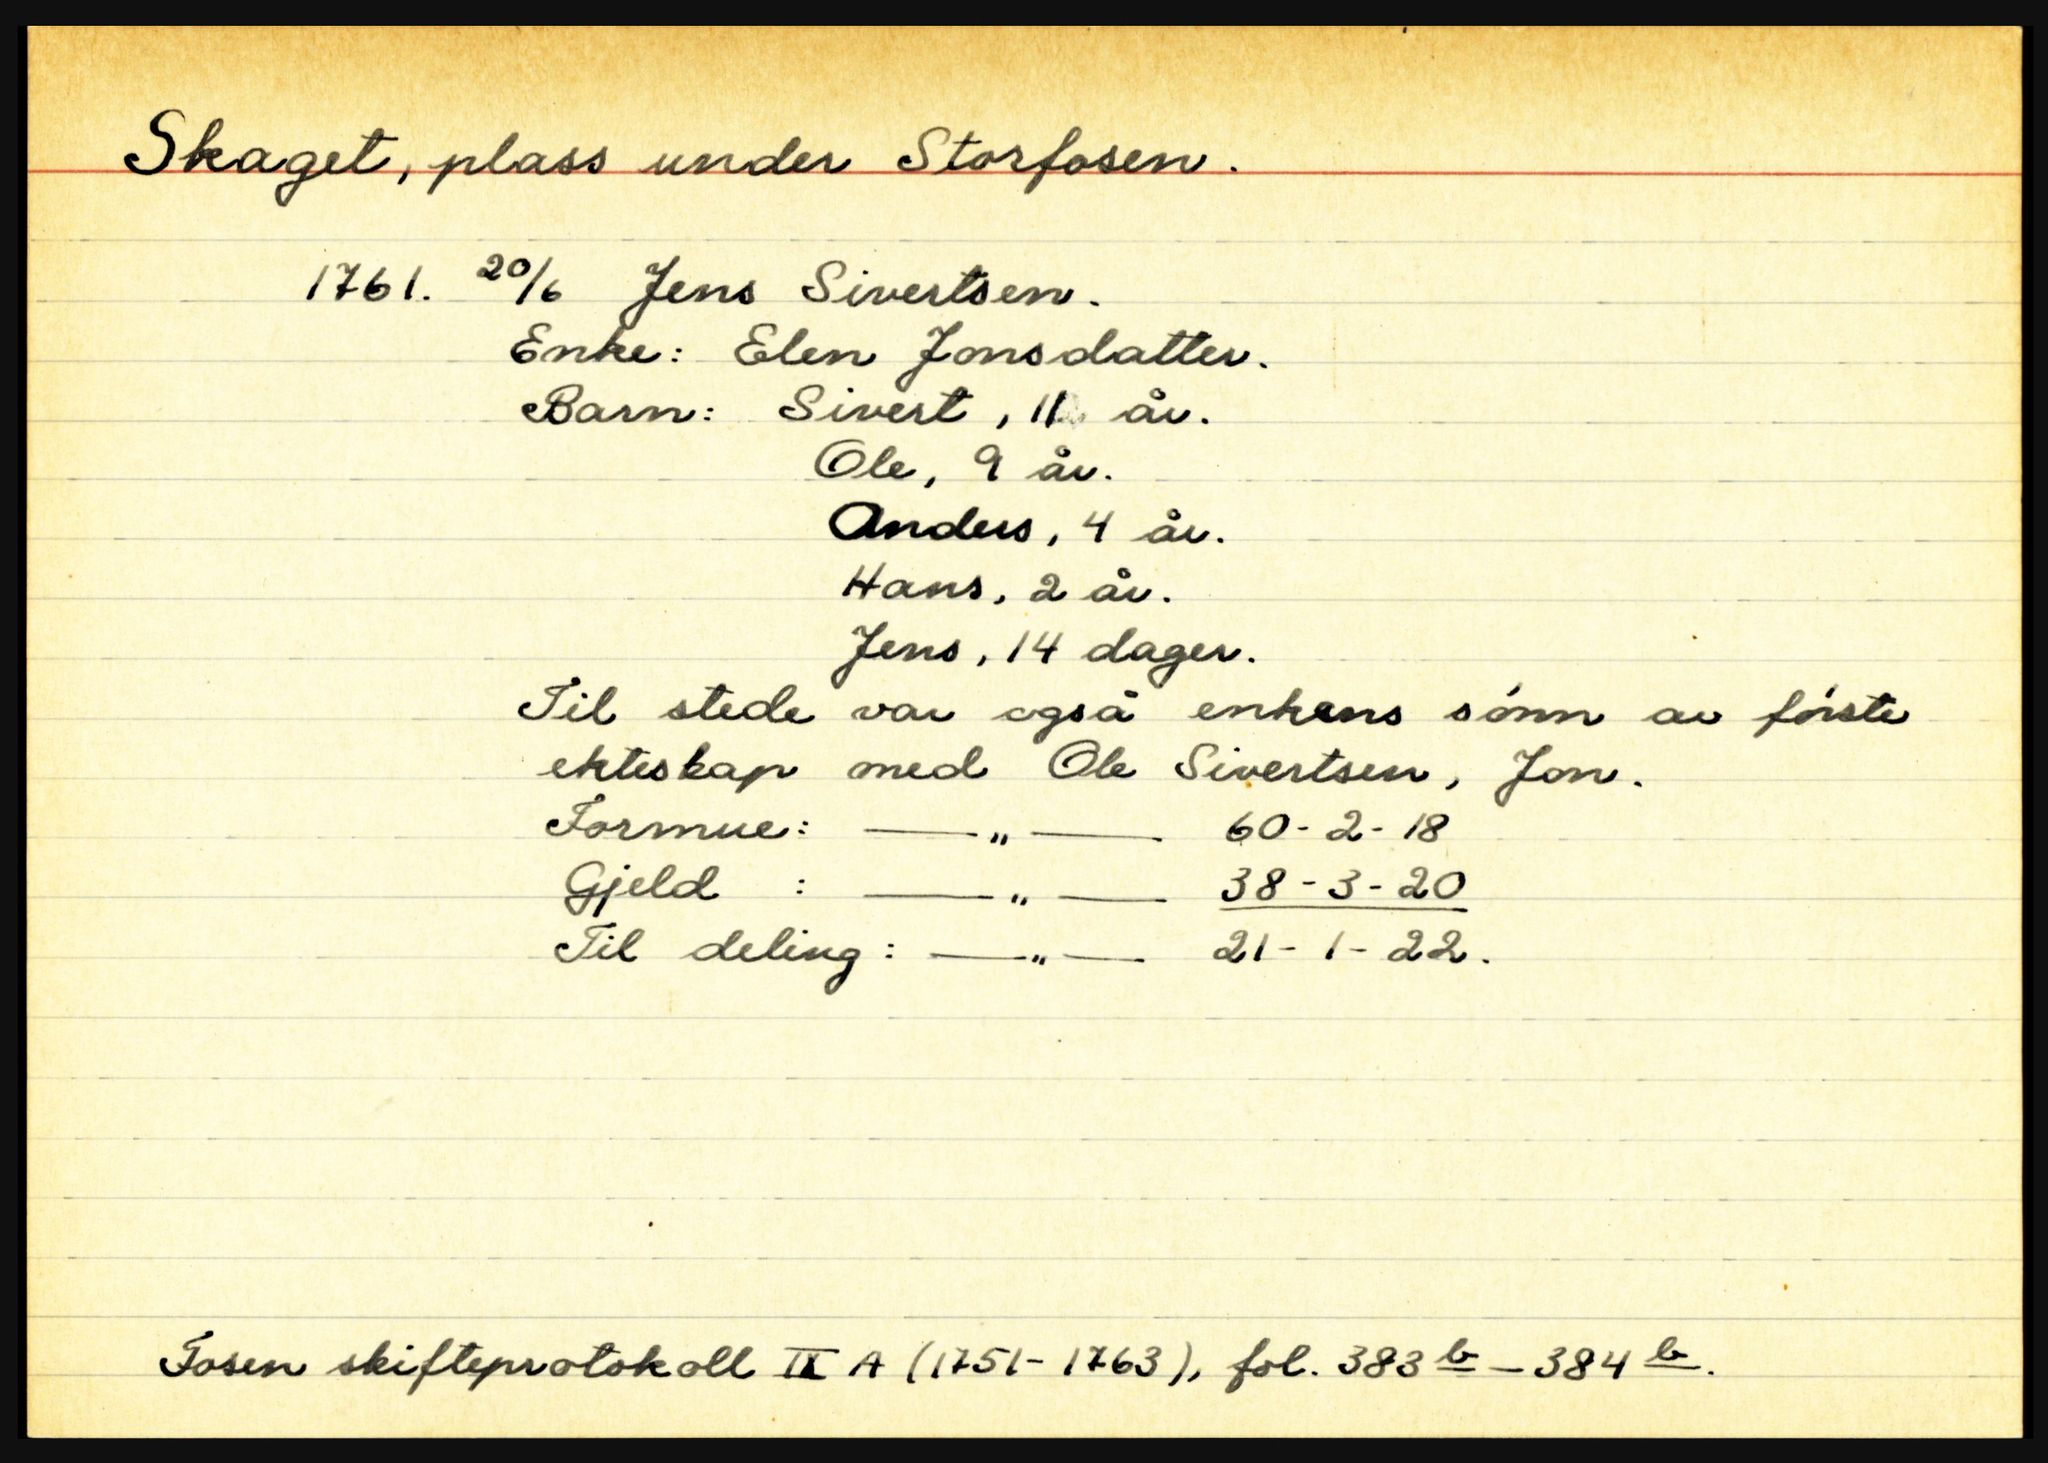 Skaget, plass under Storfosen.
1761. 20/6 Jens Sivertsen.
Enke: Elen Jonsdatter.
Barn: Sivert, 11 år.
Ole, 9 år.
Anders, 4 år.
Hans, 2 år.
Jens, 14 dager.
Til stede var også enkens sønn av første
ekteskap med Ole Sivertsen, Jon.
Formue: —„— 60-2-18
Gjeld : —„— 38-3-20
Til deling: —„— 21-1-22.
Fosen skifteprotokoll II A (1751-1763), fol. 383 b - 384 b.